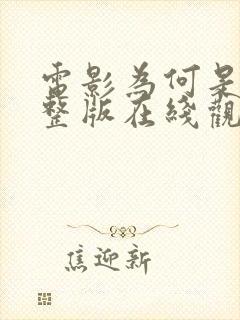 電影為何是
整版在綫觀
焦迎新